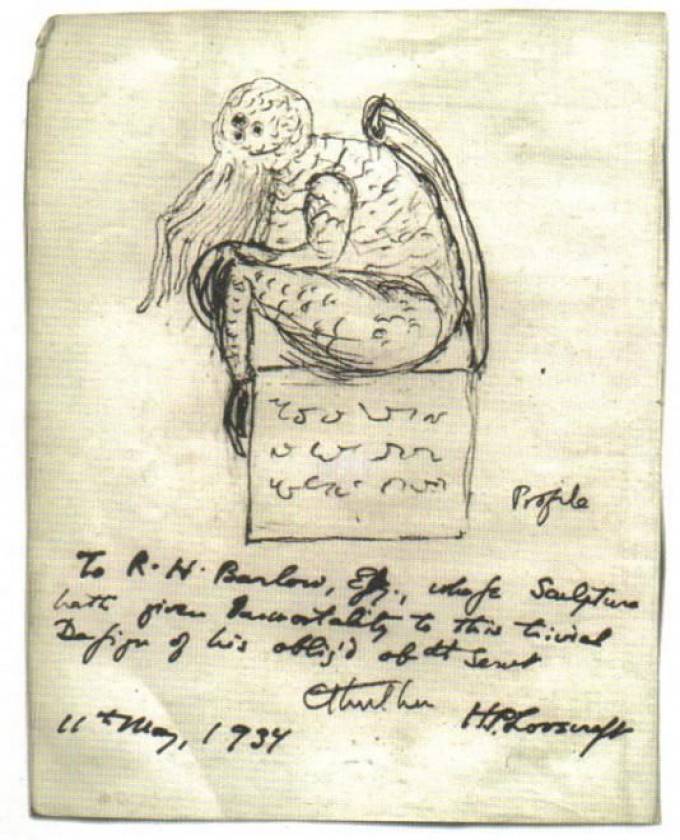 Profile
To R. H. Barlow, Eſq., whoſe Sculpture
hath given Immortality to this trivial
Deſign of his oblig'd obdt Servt
Cthulhu
H.P. Lovecraft
11th May, 1934